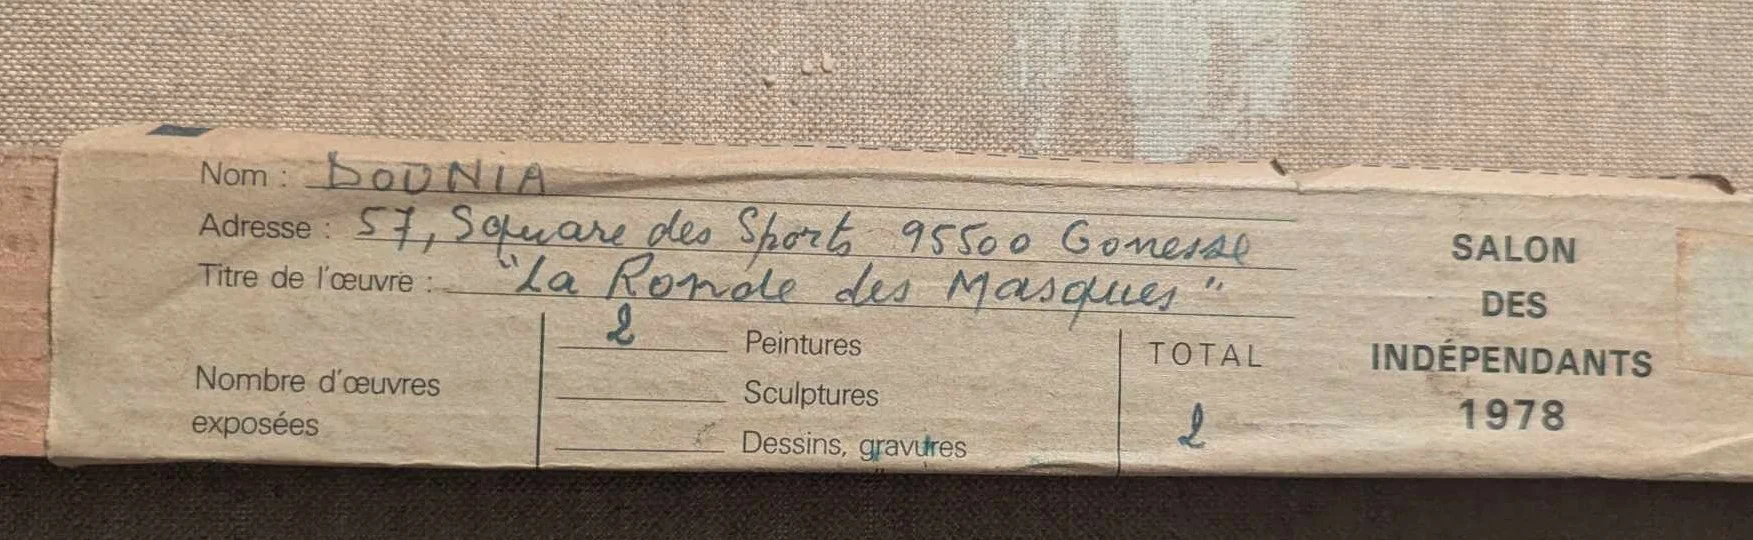 Nom : DOUNIA
Adresse : 57, Square des Sports 95500 Gonesse
Titre de l'œuvre : "La Ronde des Masques"
Nombre d'œuvres exposées
2 Peintures
Sculptures
Dessins, gravures
TOTAL
2
SALON
DES
INDÉPENDANTS
1978